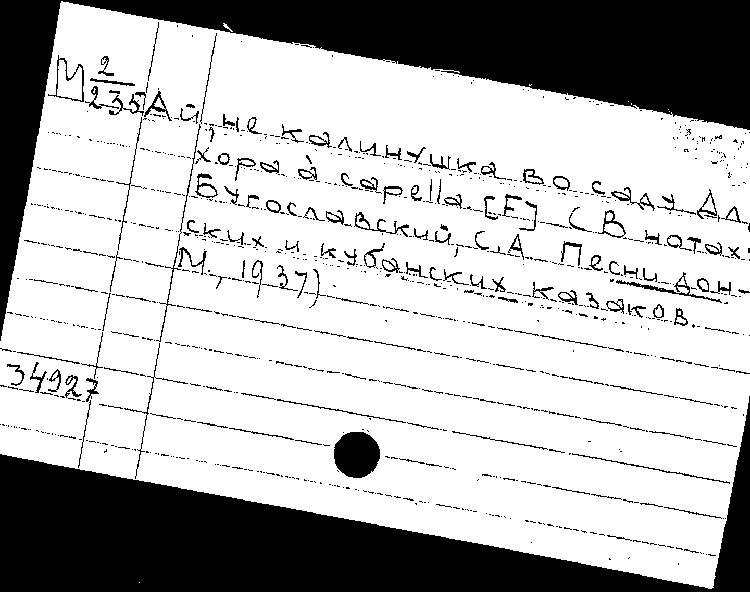 М 2/235
Ай, не калинушка во саду Дл.
хора à capella. [F] (В нотах:
Бугославский, С.А Песни дон-
ских и кубанских казаков.
М., 1937)
34927